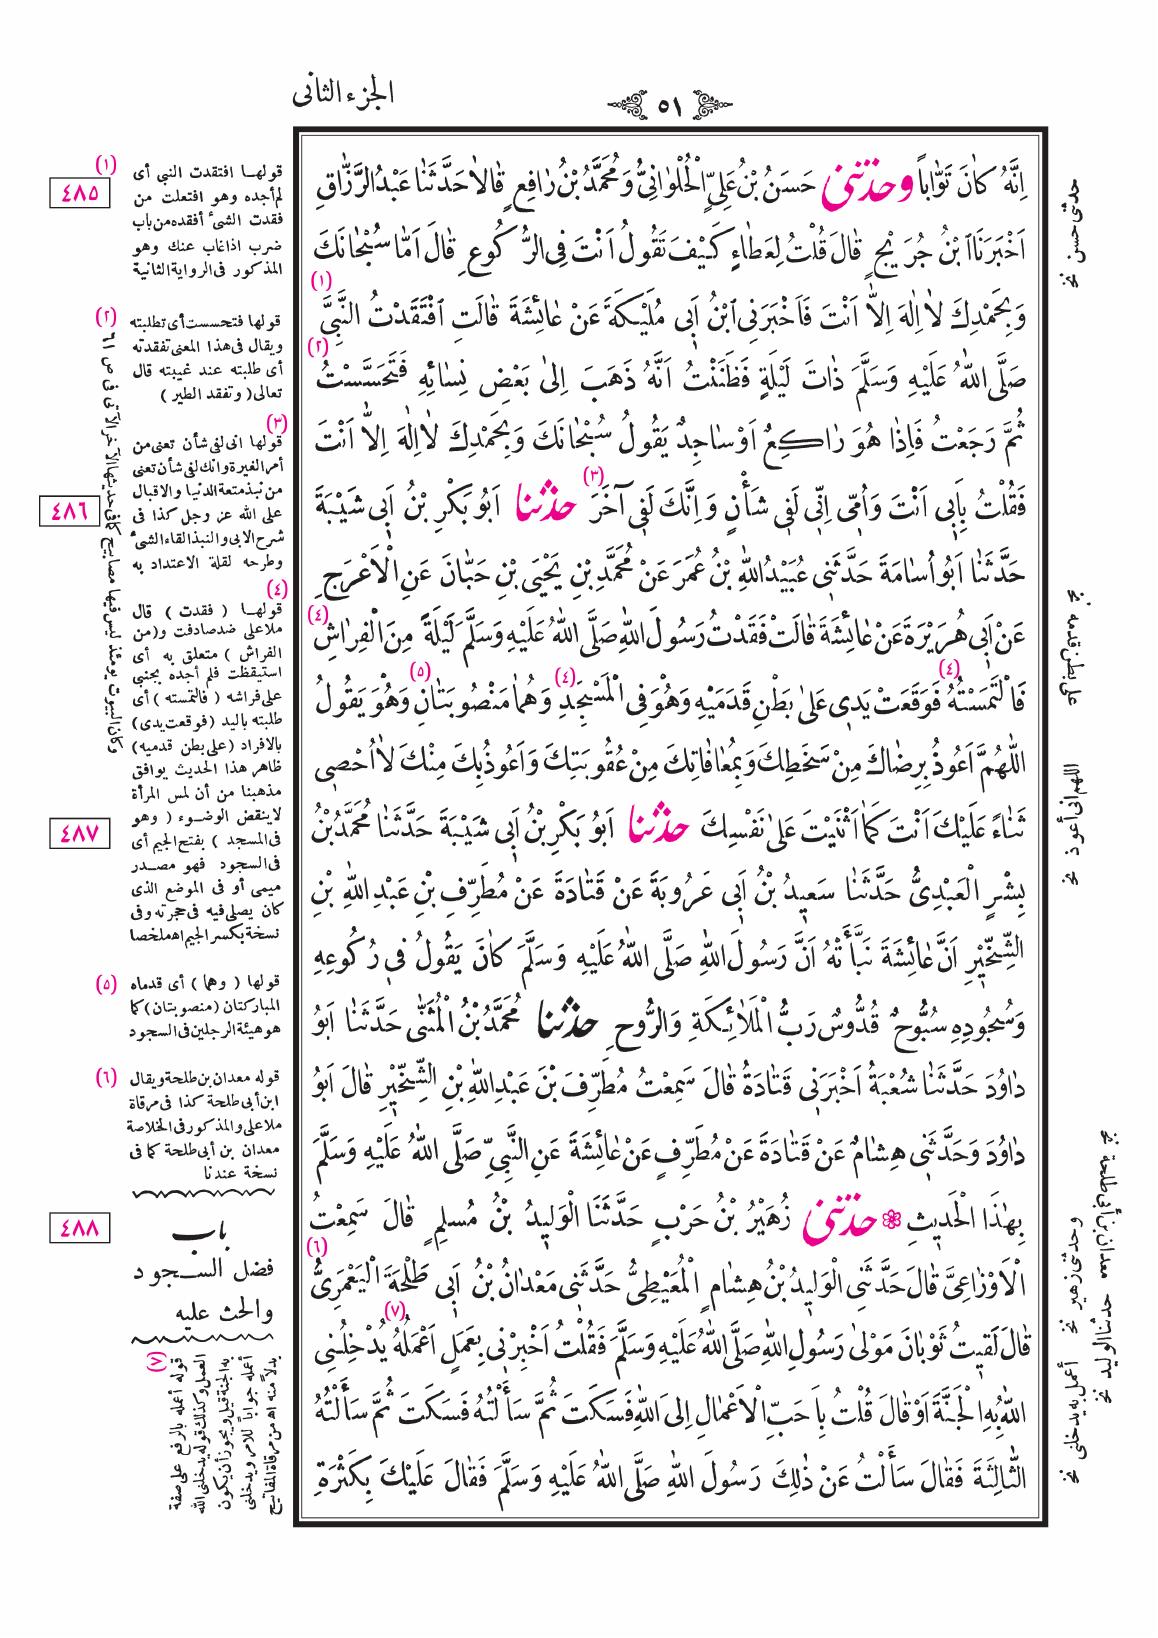 ٥١
الجزء الثانى
اِنَّهُ كَانَ تَوَّاباً وحدثنى حَسَنُ بْنُ عَلِيٍّ الْحُلْوَانِيُّ وَمُحَمَّدُ بْنُ رَافِعٍ قَالَا حَدَّثَنَا عَبْدُ الرَّزَّاقِ
اَخْبَرَنَا ابْنُ جُرَيْجٍ قَالَ قُلْتُ لِعَطَاءٍ كَيْفَ تَقُولُ اَنْتَ فِى الرُّكُوعِ قَالَ اَمَّا سُبْحَانَكَ
وَبِحَمْدِكَ لَا اِلٰهَ اِلَّا اَنْتَ فَاَخْبَرَنِى ابْنُ اَبِى مُلَيْكَةَ عَنْ عَائِشَةَ قَالَتِ افْتَقَدْتُ (١) النَّبِىَّ
صَلَّى اللّٰهُ عَلَيْهِ وَسَلَّمَ ذَاتَ لَيْلَةٍ فَظَنَنْتُ اَنَّهُ ذَهَبَ اِلىٰ بَعْضِ نِسَائِهِ فَتَحَسَّسْتُ (٢)
ثُمَّ رَجَعْتُ فَاِذَا هُوَ رَاكِعٌ اَوْ سَاجِدٌ يَقُولُ سُبْحَانَكَ وَبِحَمْدِكَ لَا اِلٰهَ اِلَّا اَنْتَ
فَقُلْتُ بِاَبِى اَنْتَ وَاُمِّى اِنِّى لَفِى شَأْنٍ وَاِنَّكَ لَفِى آخَرَ (٣) حدثنا اَبُو بَكْرِ بْنُ اَبِى شَيْبَةَ
حَدَّثَنَا اَبُو اُسَامَةَ حَدَّثَنِى عُبَيْدُ اللّٰهِ بْنُ عُمَرَ عَنْ مُحَمَّدِ بْنِ يَحْيَى بْنِ حَبَّانَ عَنِ الْاَعْرَجِ
عَنْ اَبِى هُرَيْرَةَ عَنْ عَائِشَةَ قَالَتْ فَقَدْتُ رَسُولَ اللّٰهِ صَلَّى اللّٰهُ عَلَيْهِ وَسَلَّمَ لَيْلَةً مِنَ الْفِرَاشِ (٤)
فَالْتَمَسْتُهُ (٤) فَوَقَعَتْ يَدِى عَلىٰ بَطْنِ قَدَمَيْهِ وَهُوَ فِى الْمَسْجَدِ (٤) وَهُمَا مَنْصُوبَتَانِ (٥) وَهُوَ يَقُولُ
اللّٰهُمَّ اَعُوذُ بِرِضَاكَ مِنْ سَخَطِكَ وَبِمُعَافَاتِكَ مِنْ عُقُوبَتِكَ وَاَعُوذُ بِكَ مِنْكَ لَا اُحْصِى
ثَنَاءً عَلَيْكَ اَنْتَ كَمَا اَثْنَيْتَ عَلىٰ نَفْسِكَ حدثنا اَبُو بَكْرِ بْنُ اَبِى شَيْبَةَ حَدَّثَنَا مُحَمَّدُ بْنُ
بِشْرٍ الْعَبْدِىُّ حَدَّثَنَا سَعِيدُ بْنُ اَبِى عَرُوبَةَ عَنْ قَتَادَةَ عَنْ مُطَرِّفِ بْنِ عَبْدِ اللّٰهِ بْنِ
الشِّخِّيرِ اَنَّ عَائِشَةَ نَبَّأَتْهُ اَنَّ رَسُولَ اللّٰهِ صَلَّى اللّٰهُ عَلَيْهِ وَسَلَّمَ كَانَ يَقُولُ فِى رُكُوعِهِ
وَسُجُودِهِ سُبُّوحٌ قُدُّوسٌ رَبُّ الْمَلَائِكَةِ وَالرُّوحِ حدثنا مُحَمَّدُ بْنُ الْمُثَنّٰى حَدَّثَنَا اَبُو
دَاوُدَ حَدَّثَنَا شُعْبَةُ اَخْبَرَنِى قَتَادَةُ قَالَ سَمِعْتُ مُطَرِّفَ بْنَ عَبْدِ اللّٰهِ بْنِ الشِّخِّيرِ قَالَ اَبُو
دَاوُدَ وَحَدَّثَنِى هِشَامٌ عَنْ قَتَادَةَ عَنْ مُطَرِّفٍ عَنْ عَائِشَةَ عَنِ النَّبِىِّ صَلَّى اللّٰهُ عَلَيْهِ وَسَلَّمَ
بِهٰذَا الْحَدِيثِ ❀ حدثنى زُهَيْرُ بْنُ حَرْبٍ حَدَّثَنَا الْوَلِيدُ بْنُ مُسْلِمٍ قَالَ سَمِعْتُ
الْاَوْزَاعِىَّ قَالَ حَدَّثَنِى الْوَلِيدُ بْنُ هِشَامٍ الْمُعَيْطِىُّ حَدَّثَنِى مَعْدَانُ بْنُ اَبِى طَلْحَةَ الْيَعْمَرِىُّ (٦)
قَالَ لَقِيتُ ثَوْبَانَ مَوْلىٰ رَسُولِ اللّٰهِ صَلَّى اللّٰهُ عَلَيْهِ وَسَلَّمَ فَقُلْتُ اَخْبِرْنِى بِعَمَلٍ اَعْمَلُهُ (٧) يُدْخِلُنِى
اللّٰهُ بِهِ الْجَنَّةَ اَوْ قَالَ قُلْتُ بِاَحَبِّ الْاَعْمَالِ اِلَى اللّٰهِ فَسَكَتَ ثُمَّ سَأَلْتُهُ فَسَكَتَ ثُمَّ سَأَلْتُهُ
الثَّالِثَةَ فَقَالَ سَأَلْتُ عَنْ ذٰلِكَ رَسُولَ اللّٰهِ صَلَّى اللّٰهُ عَلَيْهِ وَسَلَّمَ فَقَالَ عَلَيْكَ بِكَثْرَةِ
حدثنى حسن نخ
على بطن قدمه نخ
اللهم انى أعوذ نخ
معدان بن أبى طلحة نخ
حدثنا الوليد نخ
وحدثنى زهير نخ
أعمل به يدخلنى نخ
(١) قولهـا افتقدت النبى أى
٤٨٥
لم أجده وهو افتعلت من
فقدت الشئ أفقده من باب
ضرب اذا غاب عنك وهو
المذكور فى الرواية الثانية
(٢) قولها فتحسست أى تطلبته
ويقال فى هذا المعنى تفقدته
أى طلبته عند غيبته قال
تعالى ( وتفقد الطير )
(٣)
قولها انى لفى شأن تعنى من
أمر الغيرة وانك لفى شأن تعنى
من نبذ متعة الدنيا والاقبال
على الله عز وجل كذا فى
٤٨٦
شرح الابى والنبذ القاء الشئ
وطرحه لقلة الاعتداد به
(٤)
قولهـا ( فقدت ) قال
ملا على ضد صادفت و(من
الفراش ) متعلق به أى
استيقظت فلم أجده بجنبى
على فراشه ( فالتمسته ) أى
طلبته باليد (فوقعت يدى)
بالافراد (على بطن قدميه)
ظاهر هذا الحديث يوافق
مذهبنا من أن لمس المرأة
لا ينقض الوضوء ( وهو
٤٨٧
فى المسجد ) بفتح الجيم أى
فى السجود فهو مصـدر
ميمى أو فى الموضع الذى
كان يصلى فيه فى حجرته وفى
نسخة بكسر الجيم اه ملخصا
(٥) قولها ( وهما ) أى قدماه
المباركتان (منصوبتان) كما
هو هيئة الرجلين فى السجود
(٦) قوله معدان بن طلحة ويقال
ابن أبى طلحة كذا فى مرقاة
ملا على والمذكور فى الخلاصة
معدان بن أبى طلحة كما فى
نسخة عندنا
باب
٤٨٨
فضل السـجود
والحث عليه
(٧) قوله أعمله بالرفع على صفة
العمل وكذلك قوله يدخلنى الله
به الجنة قيل ويجوز أن يكون
أعمله جوابا للامر ويدخلنى
بدلا منه اه من مرقاة المفاتيح
وكان البيوت يومئذ ليس فيها مصابيح كما فى حديثها الآخر الآتى فى ص ٦١